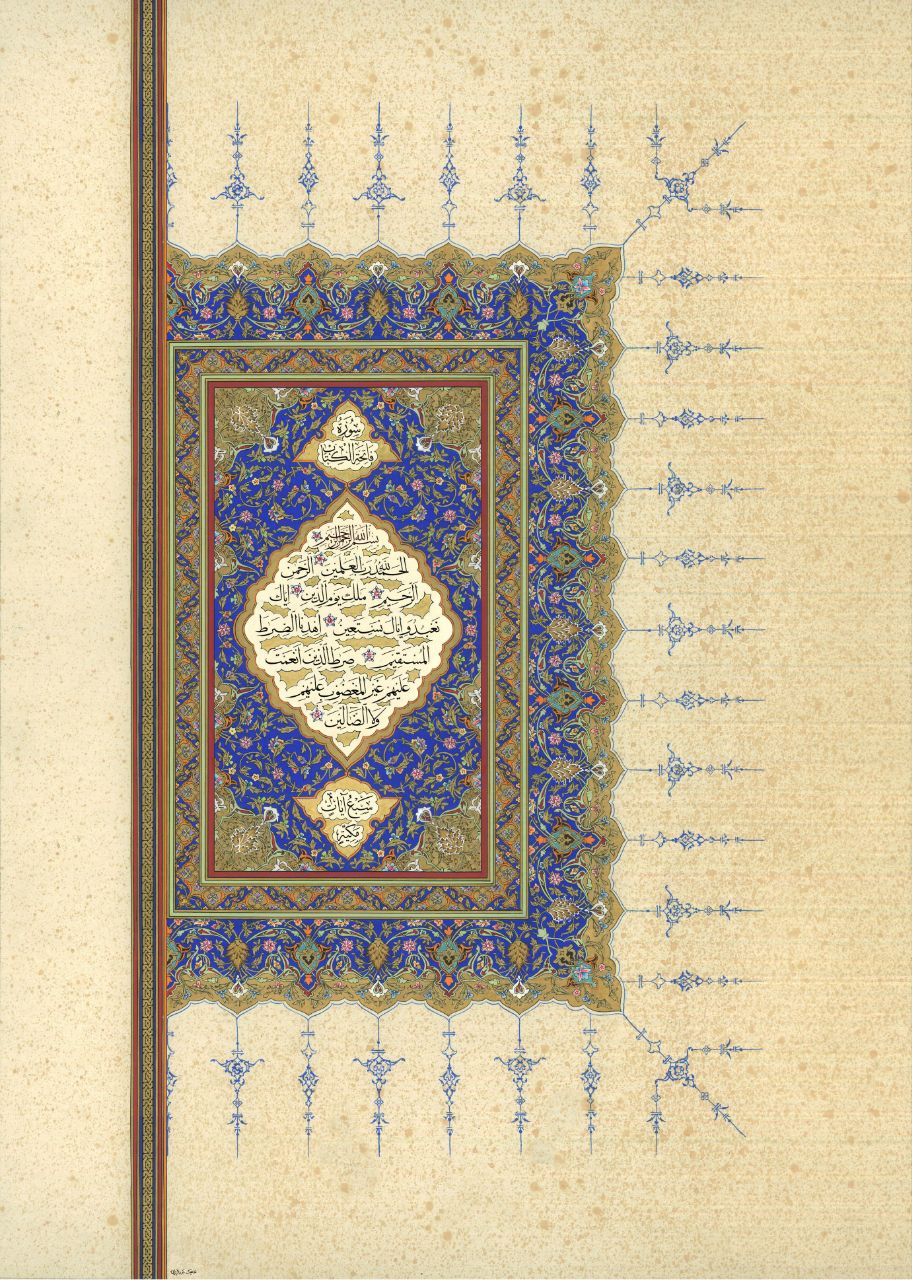 سُورَةُ
فَاتِحَةِ الْكِتَابِ
بِسْمِ اللَّهِ الرَّحْمَٰنِ الرَّحِيمِ
الْحَمْدُ لِلَّهِ رَبِّ الْعَٰلَمِينَ الرَّحْمَٰنِ
الرَّحِيمِ مَٰلِكِ يَوْمِ الدِّينِ إِيَّاكَ
نَعْبُدُ وَإِيَّاكَ نَسْتَعِينُ اهْدِنَا الصِّرَٰطَ
الْمُسْتَقِيمَ صِرَٰطَ الَّذِينَ أَنْعَمْتَ
عَلَيْهِمْ غَيْرِ الْمَغْضُوبِ عَلَيْهِمْ
وَلَا الضَّالِّينَ
سَبْعُ آيَاتٍ
مَكِّيَّة